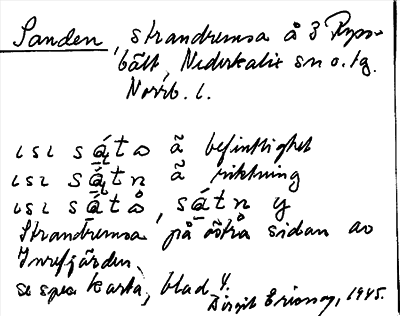 Sanden, strandremsa å 3 Ryss-
bält, Nederkalix sn o. tg.
Norrb. l.
ɩsɩ sátə ã befintlighet
ɩsɩ sátn ã riktning
ɩsɩ sátå, sátn y
Strandremsa på östra sidan av
Inrefjärden,
se spec karta, blad 4.
Birgit Ericson, 1945.